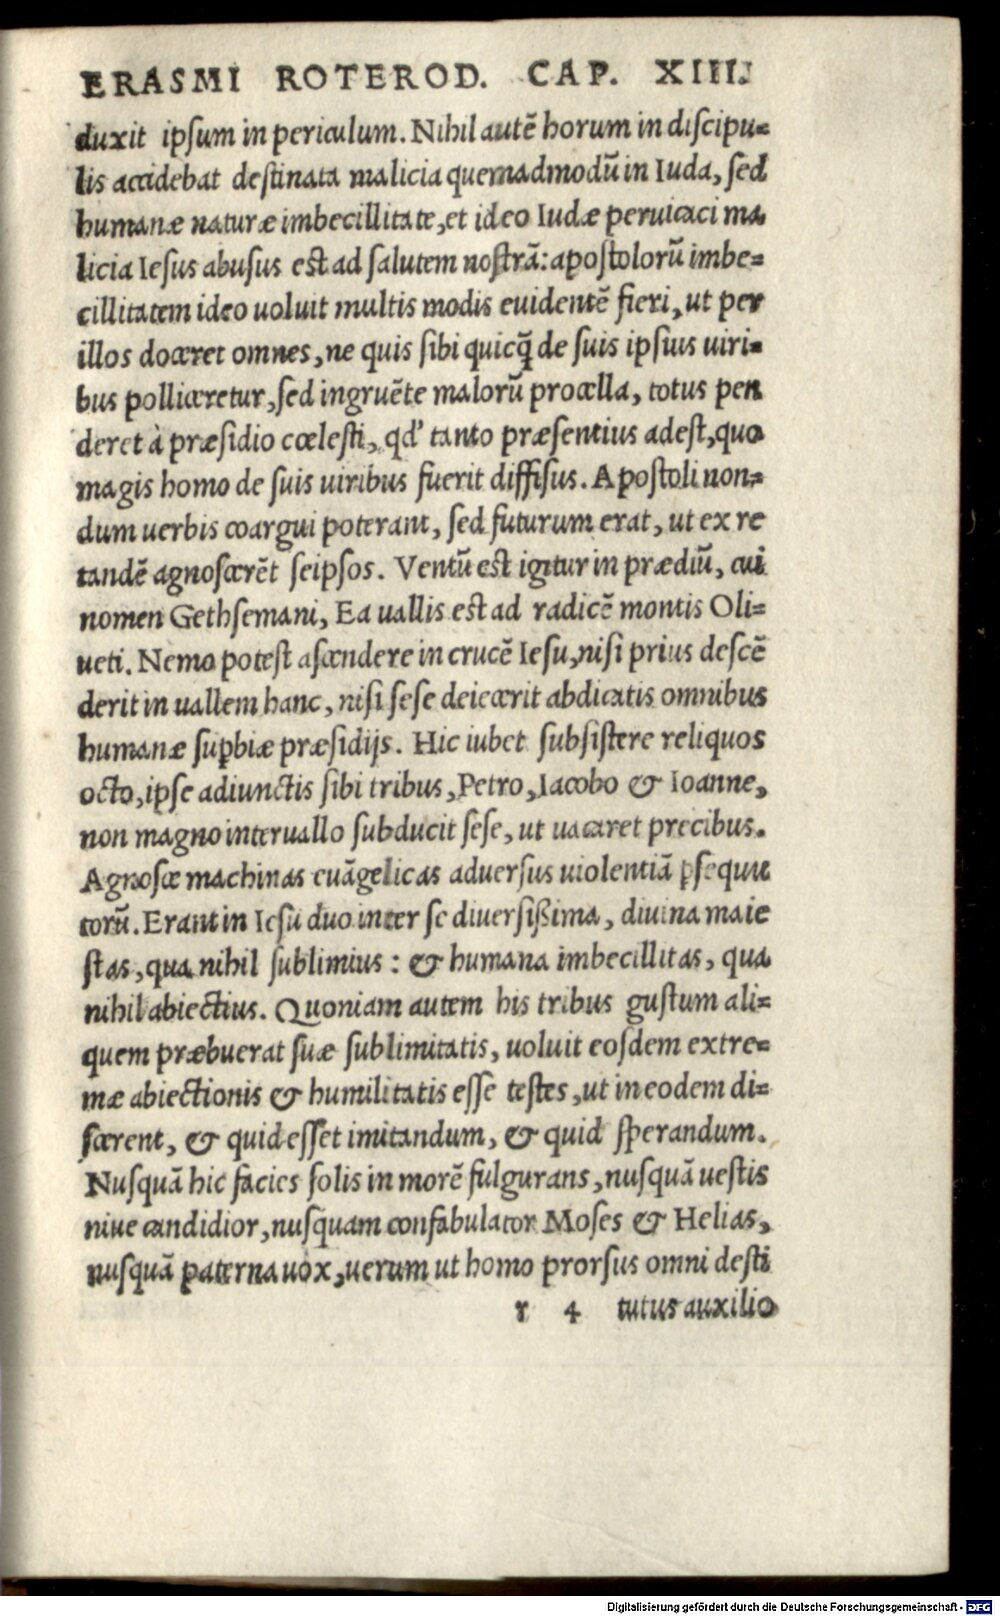 ERASMI ROTEROD. CAP. XIIII.
duxit ipſum in periculum. Nihil autē horum in diſcipu=
lis accidebat deſtinata malicia quemadmodū in Iuda, ſed
humanæ naturæ imbecillitate, et ideo Iudæ peruicaci ma
licia Ieſus abuſus eſt ad ſalutem noſtrā: apoſtolorū imbe=
cillitatem ideo uoluit multis modis euidentē fieri, ut per
illos doceret omnes, ne quis ſibi quicq̃ de ſuis ipſius uiri=
bus polliceretur, ſed ingruēte malorū procella, totus pen
deret à præſidio cœleſti, qd' tanto præſentius adeſt, quo
magis homo de ſuis uiribus fuerit diffiſus. Apoſtoli non=
dum uerbis coargui poterant, ſed futurum erat, ut ex re
tandē agnoſcerēt ſeipſos. Ventū eſt igitur in prædiū, cui
nomen Gethſemani, Ea uallis eſt ad radicē montis Oli=
ueti. Nemo poteſt aſcendere in crucē Ieſu, niſi prius deſcē
derit in uallem hanc, niſi ſeſe deiecerit abdicatis omnibus
humanæ ſuꝑbiæ præſidijs. Hic iubet ſubſiſtere reliquos
octo, ipſe adiunctis ſibi tribus, Petro, Iacobo & Ioanne,
non magno interuallo ſubducit ſeſe, ut uacaret precibus.
Agnoſce machinas euāgelicas aduerſus uiolentiā ꝑſequu
torū. Erant in Ieſu duo inter ſe diuerſißima, diuina maie
ſtas, qua nihil ſublimius: & humana imbecillitas, qua
nihil abiectius. Quoniam autem his tribus guſtum ali=
quem præbuerat ſuæ ſublimitatis, uoluit eoſdem extre=
mæ abiectionis & humilitatis eſſe teſtes, ut in eodem di=
ſcerent, & quid eſſet imitandum, & quid ſperandum.
Nuſquā hic facies ſolis in morē fulgurans, nuſquā ueſtis
niue candidior, nuſquam confabulator Moſes & Helias,
nuſquā paterna uox, uerum ut homo prorſus omni deſti
r 4 tutus auxilio
Digitalisierung gefördert durch die Deutsche Forschungsgemeinschaft - DFG